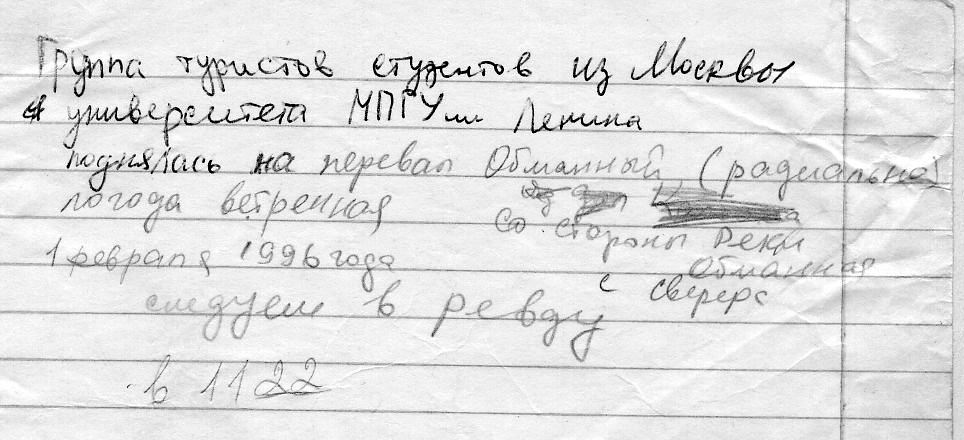 Группа туристов студентов из Москвы
университета МПГУ им Ленина
поднялась на перевал Обманный (радиально)
погода ветренная
со стороны реки
Обманная
1 февраля 1996 года
с сверера
следуем в Ревду
в 11 22